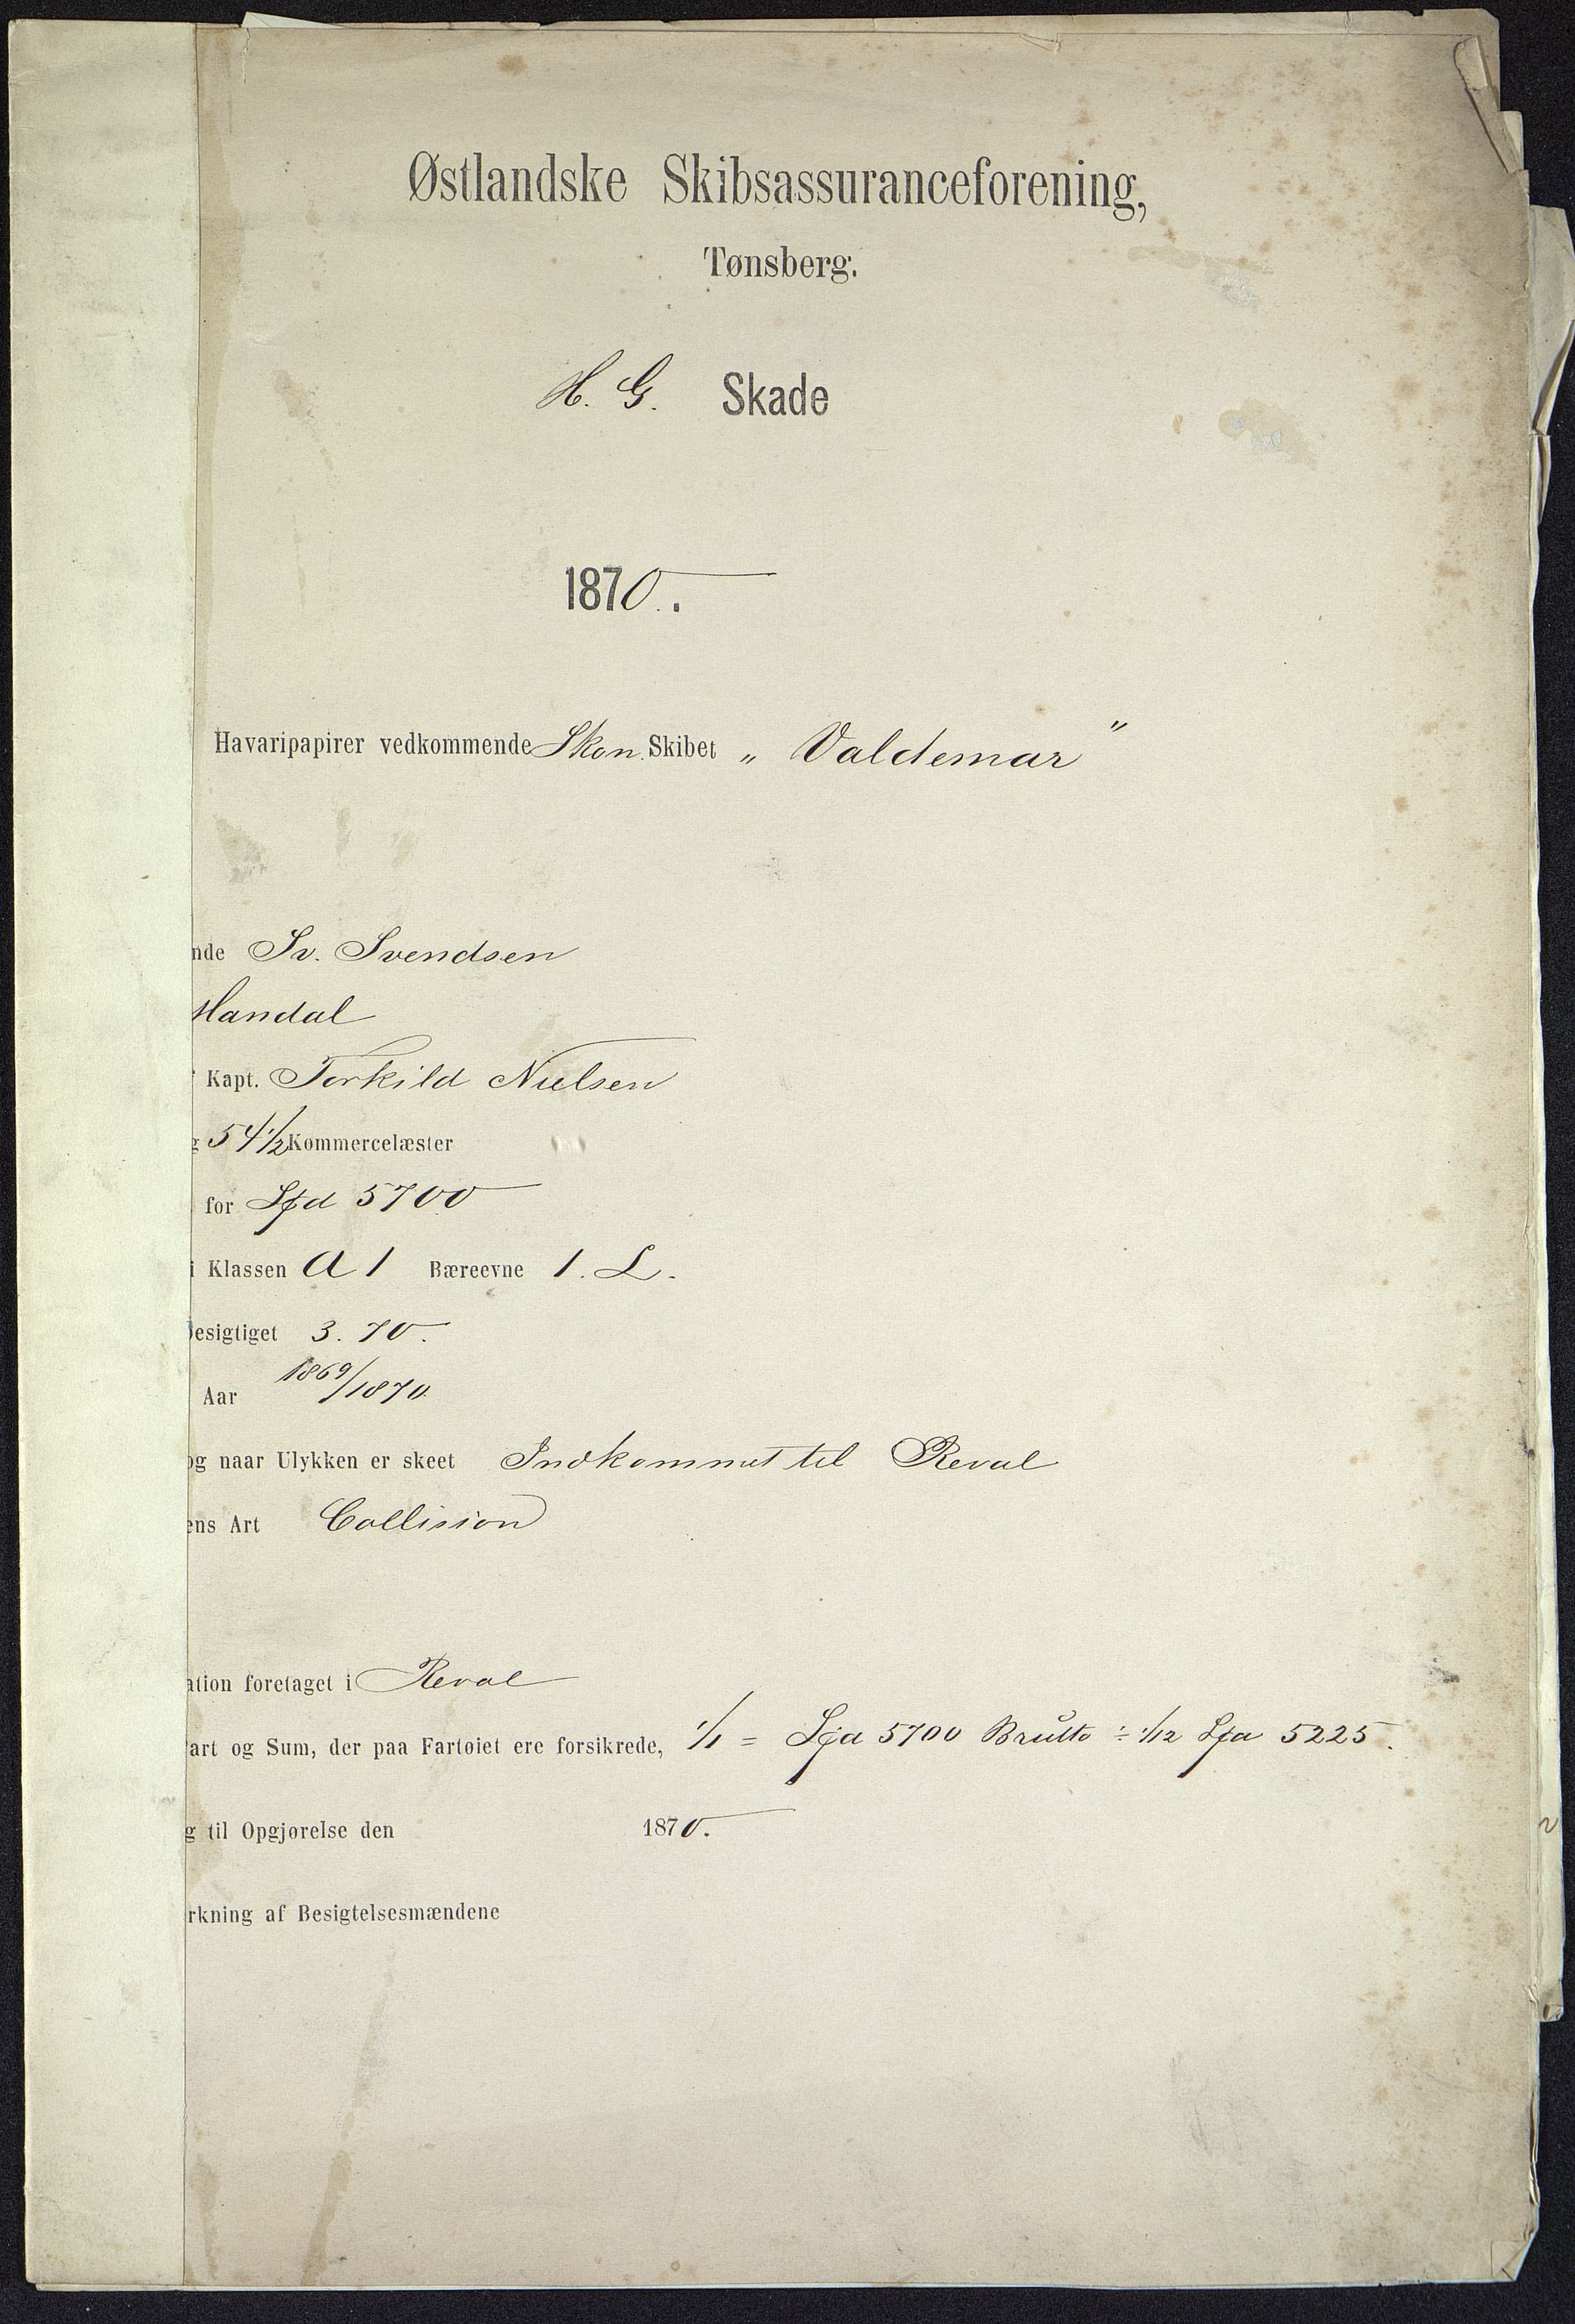 Østlandske Skibsassuranceforening,
Tønsberg.
H. G. Skade
1870.
Havaripapirer vedkommende Skon. Skibet „ Valdemar "
nde Sv. Svendsen
Mandal
Kapt. Torkild Nielsen
g 54 1/2 Kommercelæster
for Spd 5700
i Klassen A 1 Bæreevne 1. L.
besigtiget 3. 70.
Aar 1869/1870.
og naar Ulykken er skeet Indkommet til Reval
ens Art Collision
ation foretaget i Reval
Part og Sum, der paa Fartøiet ere forsikrede, 1/1 = Spd 5700 Brutto ÷ 1/12 Spd 5225.
g til Opgjørelse den 1870.
rkning af Besigtelsesmændene